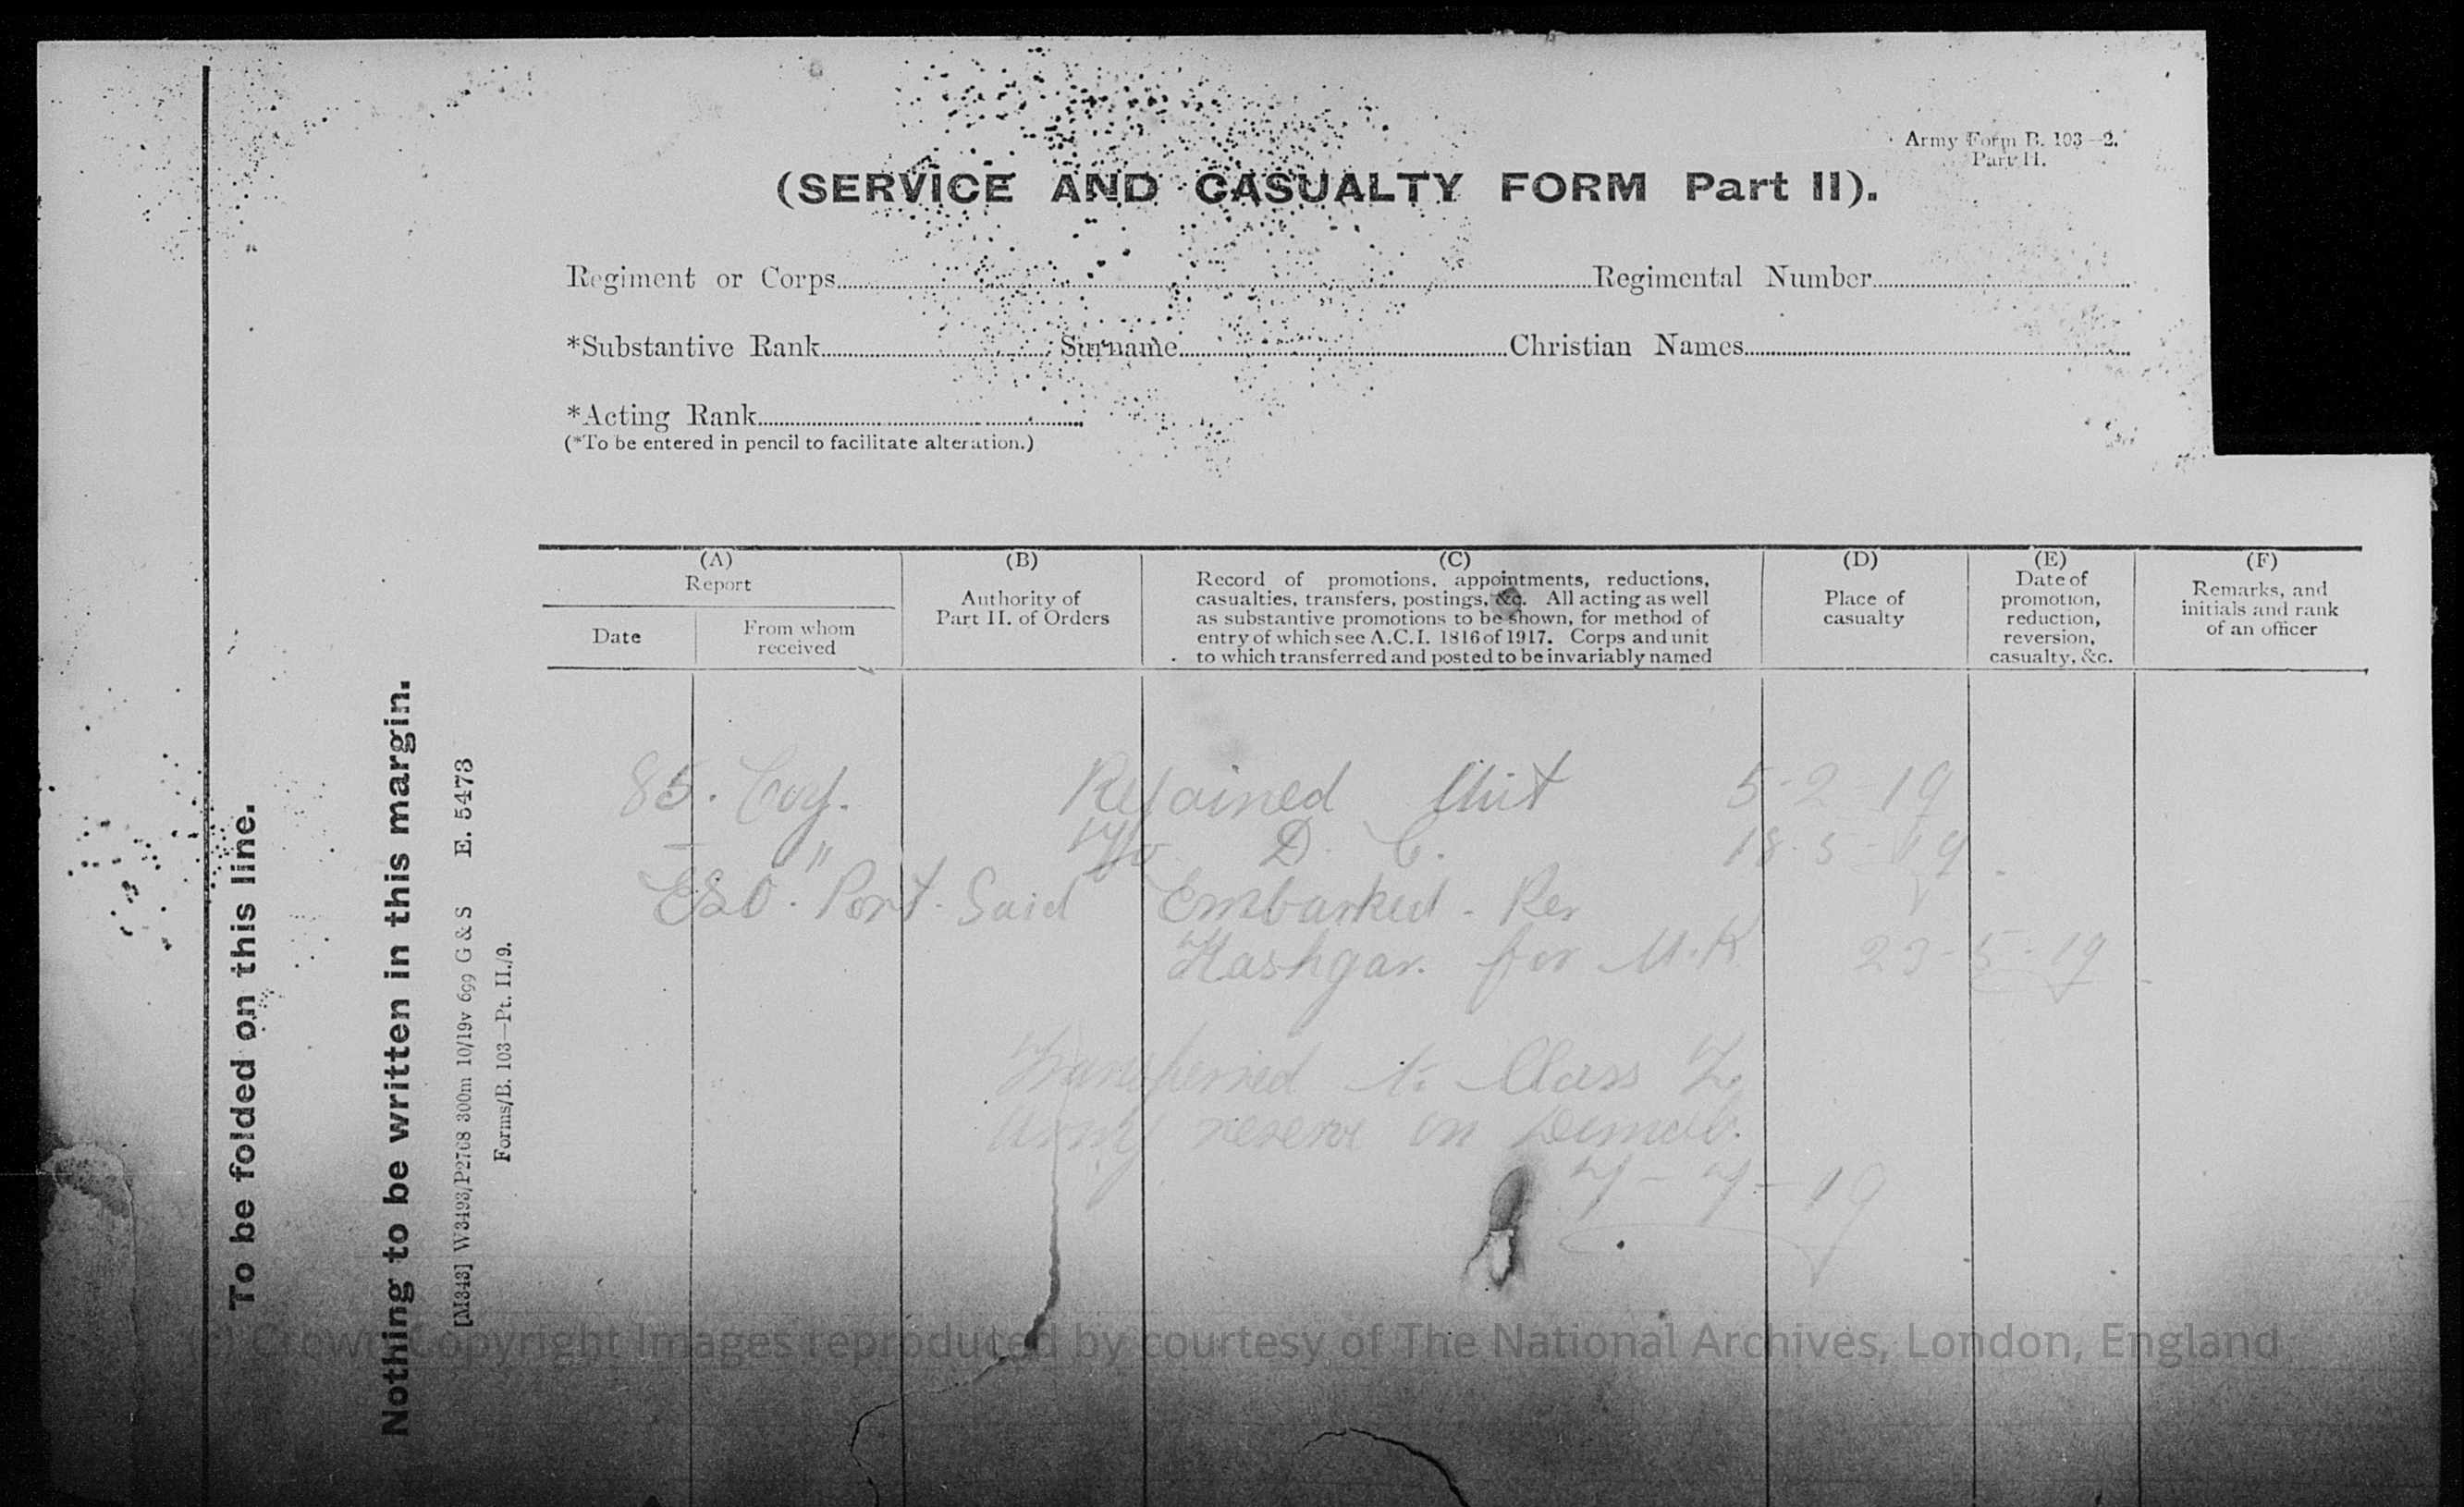 Army Form B. 103—2.
Part II.
(SERVICE AND CASUALTY FORM Part II).
Regiment or Corps Regimental Number
*Substantive Rank Surname Christian Names
*Acting Rank
(*To be entered in pencil to facilitate alteration.)
(A)
Report
Date
From whom
received
(B)
Authority of
Part II. of Orders
(C)
Record of promotions, appointments, reductions,
casualties, transfers, postings, &c. All acting as well
as substantive promotions to be shown, for method of
entry of which see A.C.I. 1816 of 1917. Corps and unit
to which transferred and posted to be invariably named
(D)
Place of
casualty
(E)
Date of
promotion,
reduction,
reversion,
casualty, &c.
(F)
Remarks, and
initials and rank
of an officer
85. Coy. Rejoined Unit 5-2-19
" D. C. 18.5-19
ESO. Port Said Embarked - Per
Kashgar. for U.K 23-5-19
Transferred to Class Z
Army reserve on Demob.
7-7-19
To be folded on this line.
Nothing to be written in this margin.
[M343] W3493/P2768 300m 10/19v 699 G & S E. 5473
Forms/B. 103—Pt. II./9.
(c) Crown Copyright Images reproduced by courtesy of The National Archives, London, England